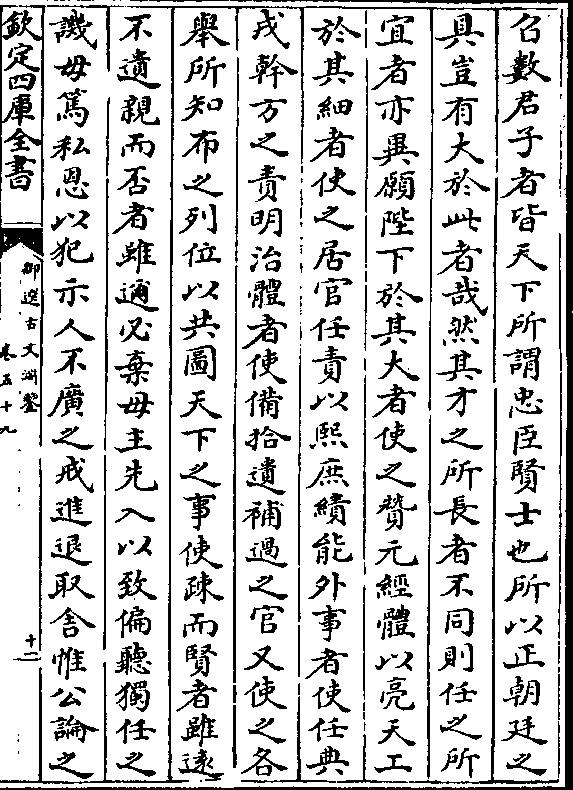 召數君子者皆天下所謂忠臣賢士也所以正朝廷之
具豈有大於此者哉然其才之所長者不同則任之所
宜者亦異願陛下於其大者使之贊元經體以亮天工
於其細者使之居官任責以熙庶績能外事者使任典
戎幹方之責明治體者使備拾遺補過之官又使之各
舉所知布之列位以共圖天下之事使疎而賢者雖逺
不遺親而否者雖邇必棄毋主先入以致偏聽獨任之
譏毋篤私恩以犯示人不廣之戒進退取舍惟公論之
欽定四庫全書
御選古文淵鑒
卷五十九
十二